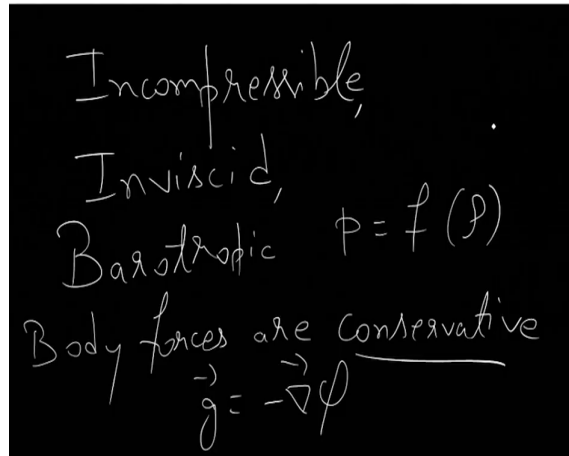 Incompressible,
Inviscid,
Barotropic p = f(ρ)
Body forces are conservative
g⃗ = -∇⃗φ